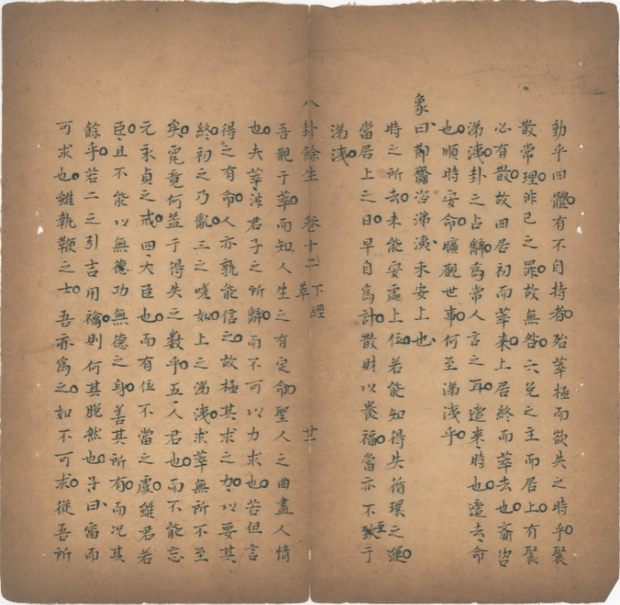 動乎四體有不自持者殆萃極而欲失之時乎聚
散常理非已之罪故無咎六兌之主而居上有聚
必有散故四居初而萃來上居終而萃去也齎咨
涕洟卦之占辭為常人言之耳遠來時也遠去命
也順時安命曠觀世事何至涕洟乎
象曰齎咨涕洟未安上也
時之所去未能安處上位若能知得失循環之運
當居上之日早自為計散財以養福當亦不致于
涕洟
八卦餘生 卷十二 下經 萃 廿一
吾觀于萃而知人生之有定命聖人之曲盡人情
也夫萃非君子之所歸而不可以力求也苦但言
得之有命人亦孰能信之故極其求之力以要其
終初之乃亂三之嗟如上之涕洟求萃無所不至
矣究竟何益于得失之數乎五人君也而不能忘
元永貞之戒四大臣也而有位不當之虞雖君若
臣且不能以無德功無德之身善其所有而况其
餘乎若二之引吉用禴則何其脫然也子曰富而
可求也雖執鞭之士吾亦為之如不可求從吾所